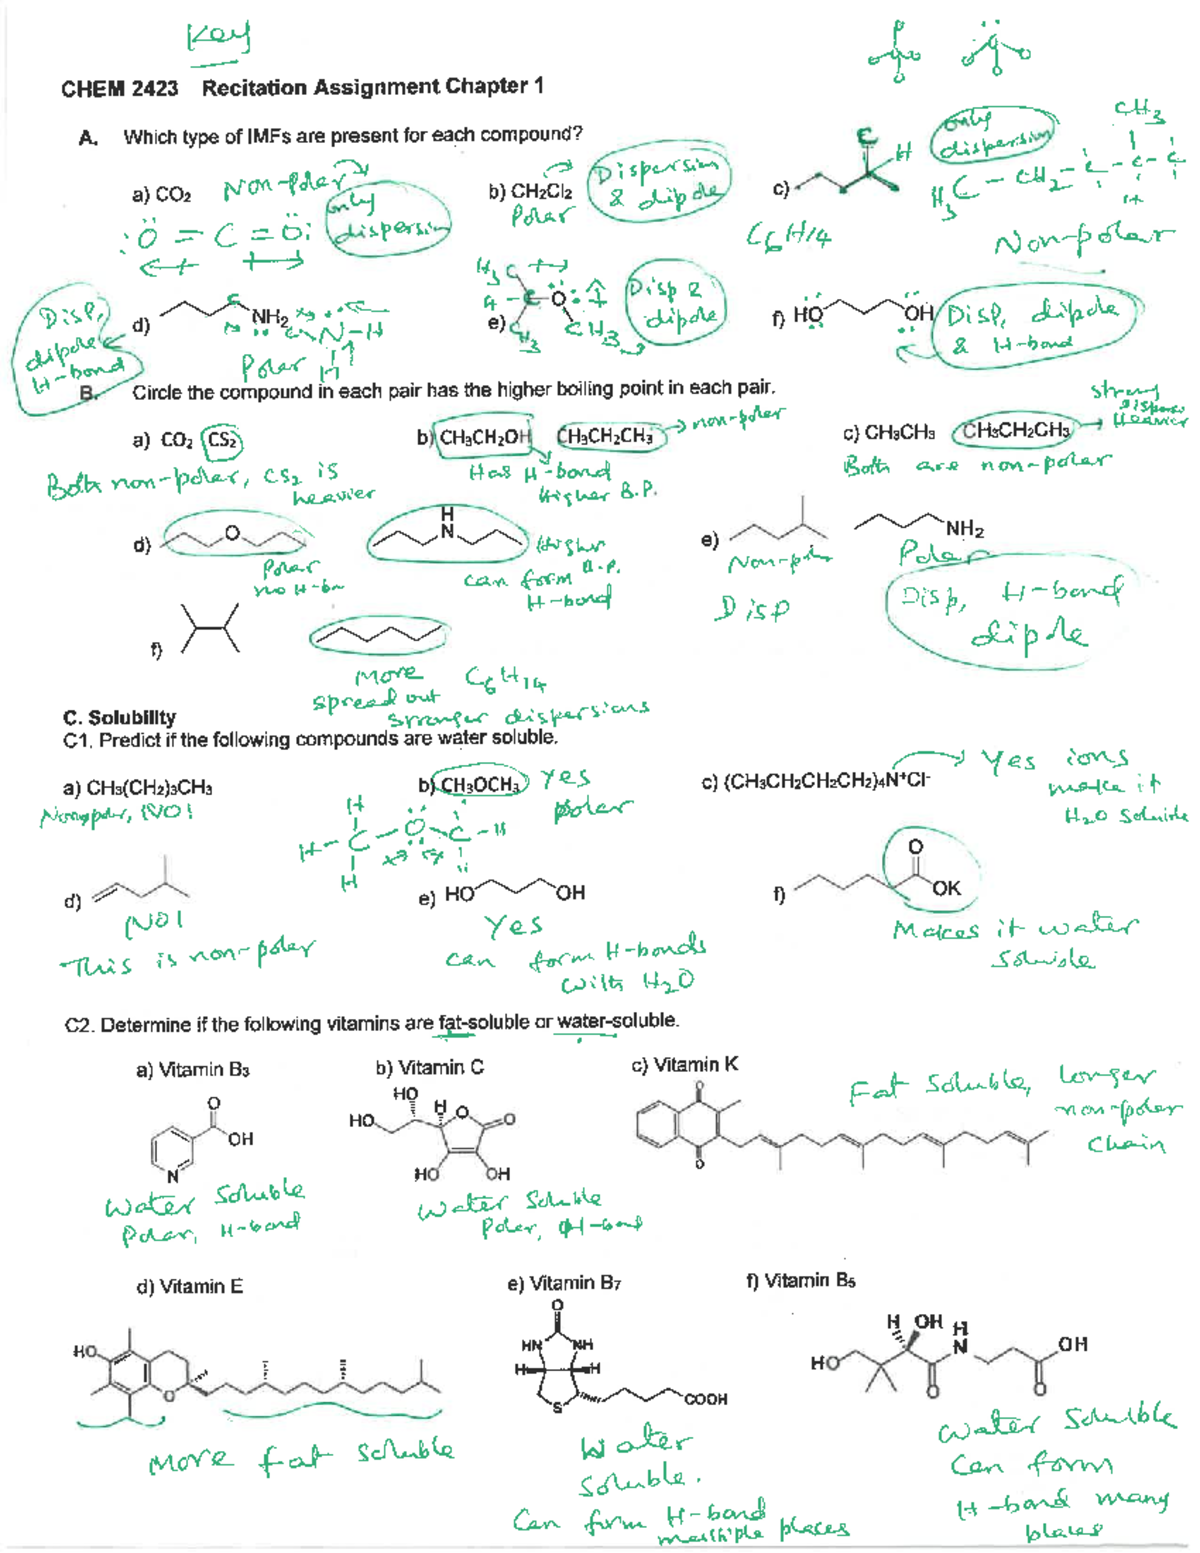 Key
CHEM 2423 Recitation Assignment Chapter 1
A. Which type of IMFs are present for each compound?
a) CO2 Non-polar only dispersion
:O = C = O:
b) CH2Cl2 Polar Dispersion & dipole
c) C H only dispersion
CH3
H3C - CH2 - C - C - C
H
C6H14 Non-polar
d) NH2 Disp, dipole H-bond
C N-H
H
Polar
e) O H3C H CH3 CH3 Disp & dipole
f) HO OH Disp, dipole & H-bond
B. Circle the compound in each pair has the higher boiling point in each pair.
a) CO2 CS2
Both non-polar, CS2 is heavier
b) CH3CH2OH CH3CH2CH3 → non-polar
Has H-bond
Higher B.P.
c) CH3CH3 CH3CH2CH3 → strong Heavier
Both are non-polar
d) O
Polar
no H-bon
H
N
Higher B.P.
can form
H-bond
e) NH2
Non-polar
Disp
Polar
Disp, H-bond
dipole
f)
More C6H14
spread out
stronger dispersions
C. Solubility
C1. Predict if the following compounds are water soluble.
a) CH3(CH2)3CH3
Nonpolar, NO!
b) CH3OCH3 Yes
polar
H
H- C - O - C - H
H
c) (CH3CH2CH2CH2)4N+Cl- → Yes ions
make it
H2O soluble
d)
NO!
This is non-polar
e) HO OH
Yes
can form H-bonds
with H2O
f) O OK
Makes it water
soluble
C2. Determine if the following vitamins are fat-soluble or water-soluble.
a) Vitamin B3
O
OH
N
Water Soluble
Polar, H-bond
b) Vitamin C
HO
HO H O O
HO OH
Water Soluble
Polar, H-bond
c) Vitamin K
O
O
Fat Soluble, longer
non-polar
chain
d) Vitamin E
HO
O
More fat soluble
e) Vitamin B7
O
HN NH
H H
S COOH
Water
Soluble.
Can form H-bond
multiple places
f) Vitamin B5
H OH H
HO N OH
O O
Water Soluble
Can form
H-bond many
places